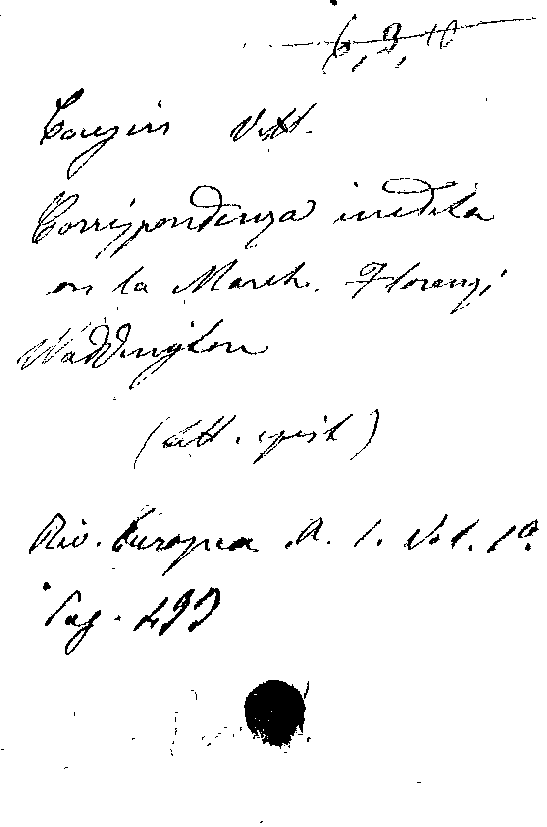 6, 3, 10
Cousin Vitt.
Corrispondenza inedita
on la March. Florenzi
Waddington
(lett. epist)
Riv. Europea A. 1. Vol. 1º
Pag. 493